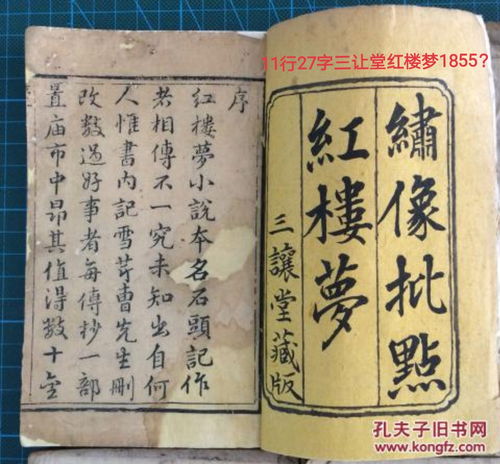 11行27字三让堂红楼梦1855?
繡像批點
紅樓夢
三讓堂藏版
序
紅樓夢小說本名石頭記作
者相傳不一究未知出自何
人惟書内記雪芹曹先生刪
改數過好事者每傳抄一部
置庙市中昂其值得數十金
孔夫子旧书网
www.kongfz.com